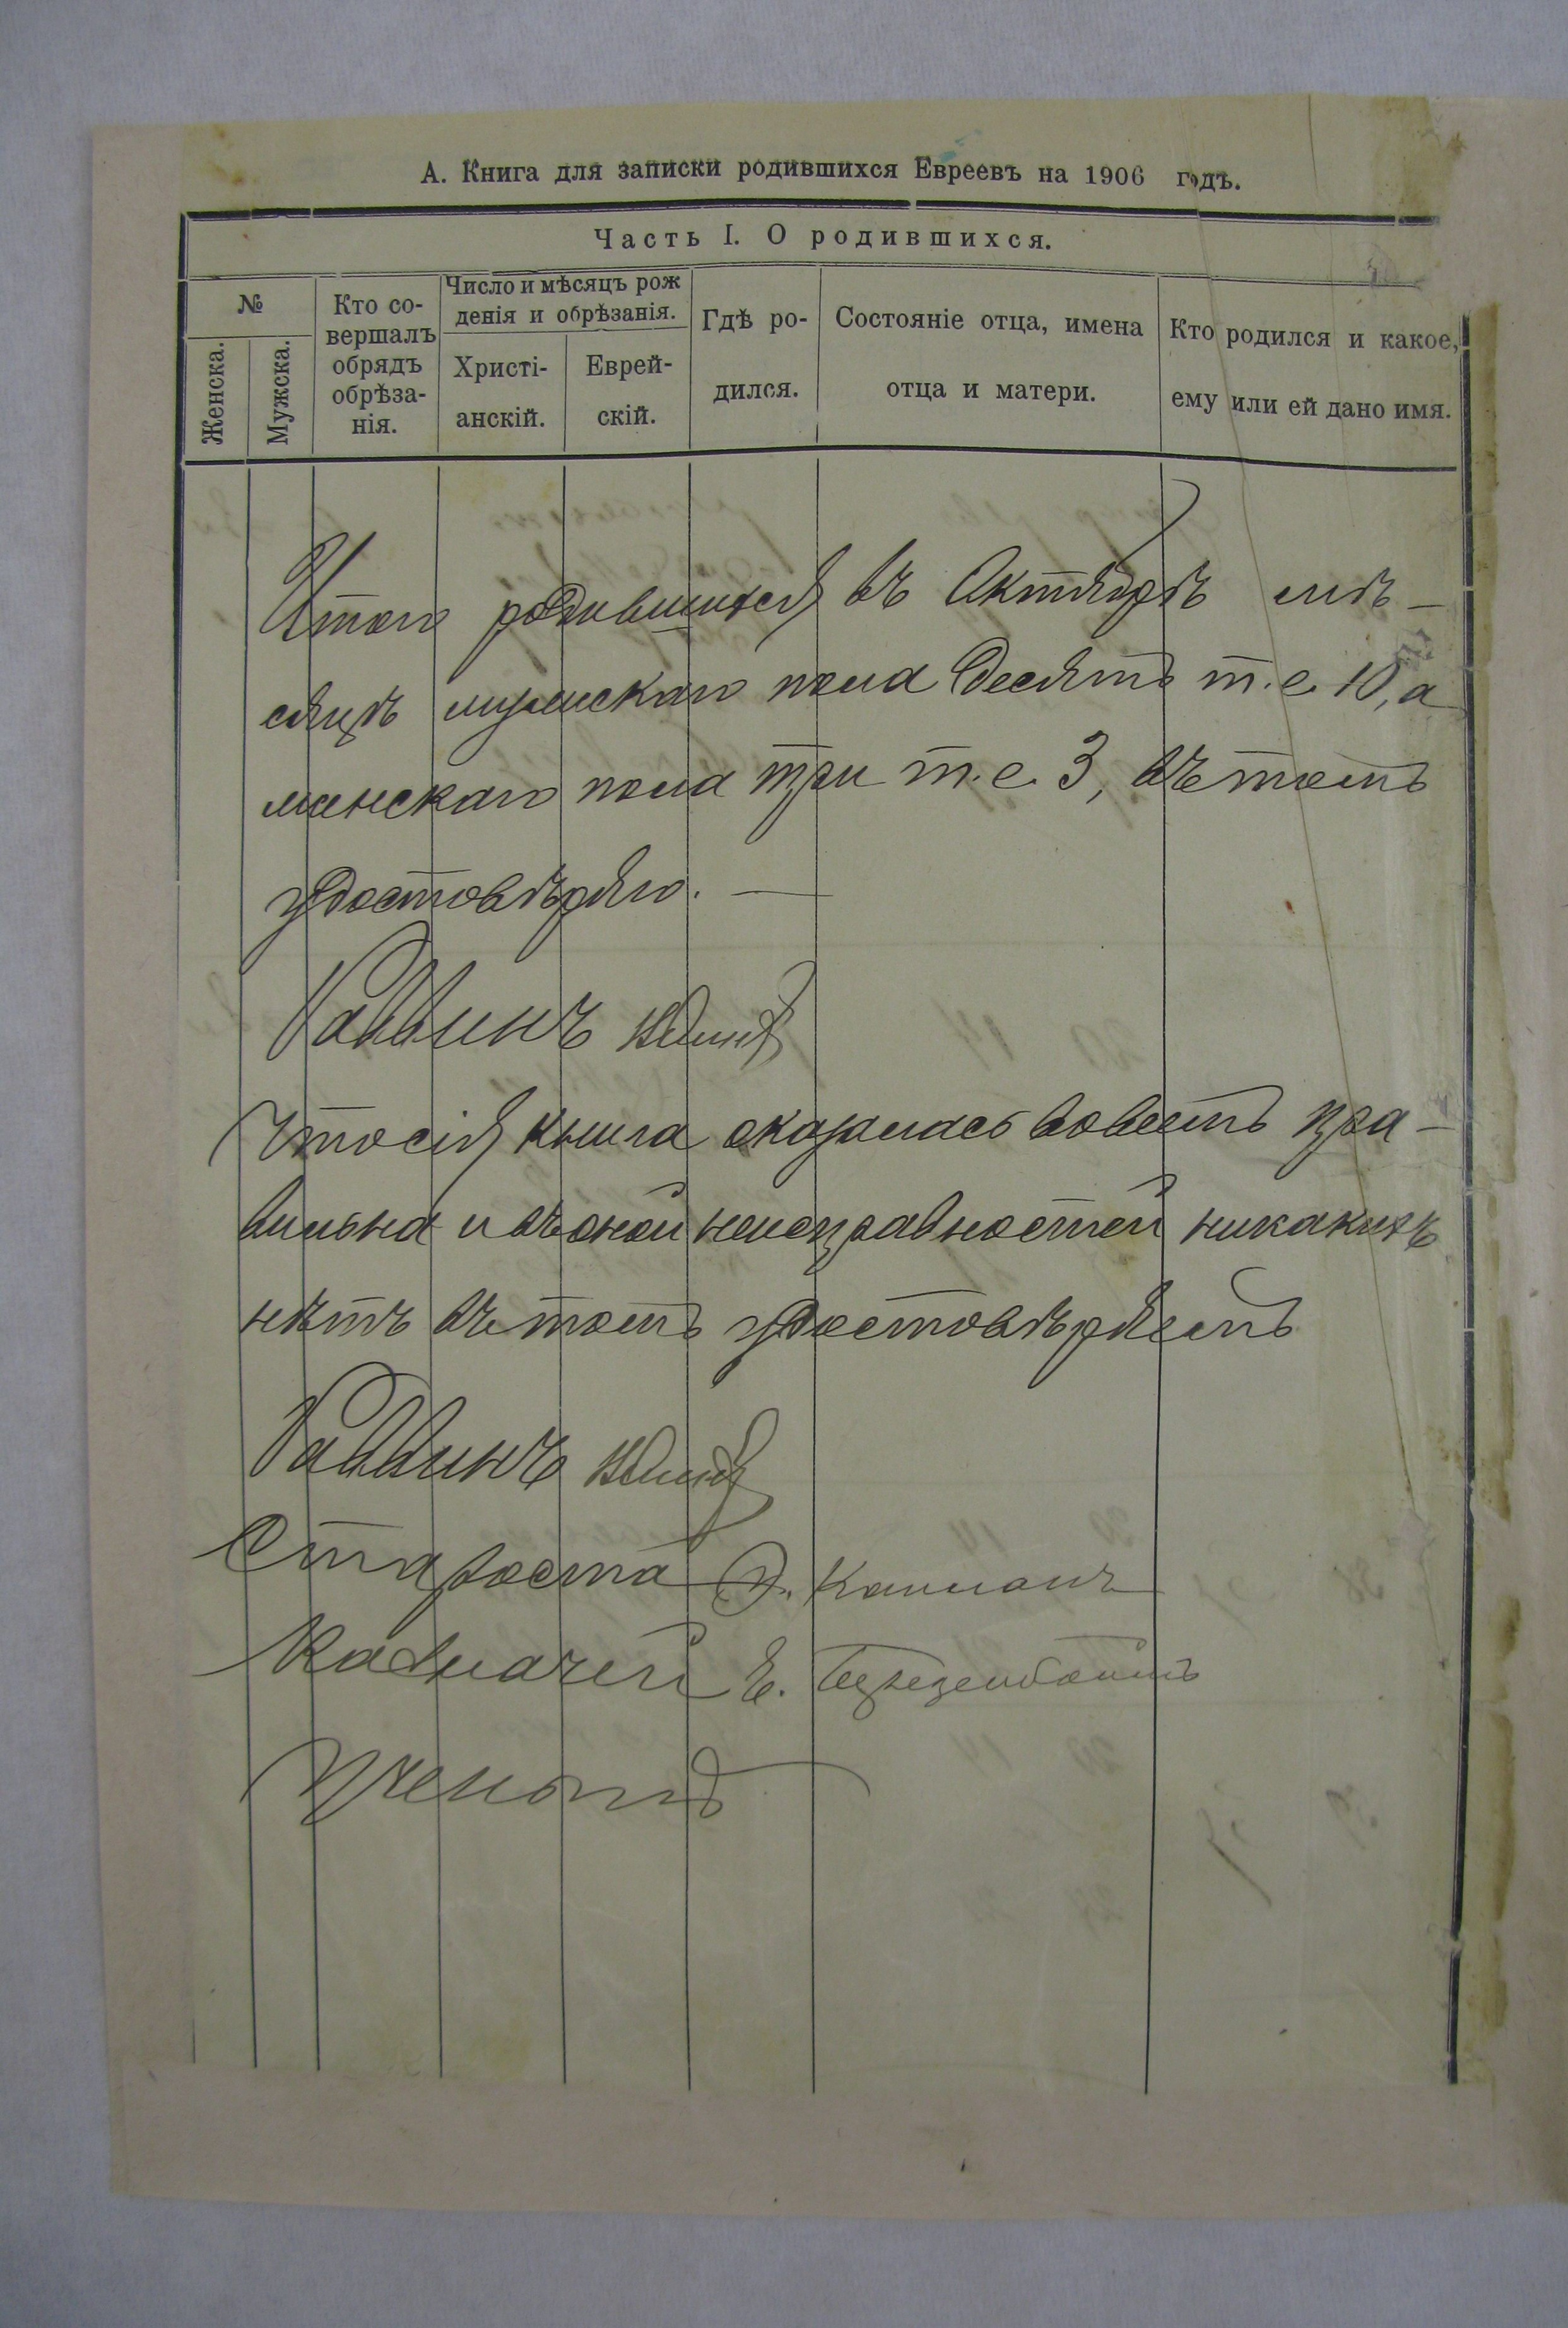 А. Книга для записки родившихся Евреевъ на 1906 годъ.
Часть I. О родившихся.
№
Женска.
Мужска.
Кто со-
вершалъ
обрядъ
обрѣза-
нія.
Число и мѣсяцъ рож
денія и обрѣзанія.
Христі-
анскій.
Еврей-
скій.
Гдѣ ро-
дился.
Состояніе отца, имена
отца и матери.
Кто родился и какое,
ему или ей дано имя.
Итого родившихся въ Октябрѣ мѣ-
сяцѣ мужскаго пола десять т.е. 10, а
женскаго пола три т.е. 3, въ томъ
удостовѣряю. —
Раввинъ
Что сія книга оказалась вовсемъ пра-
вильна и въ оной неисправностей никакихъ
нѣтъ въ томъ удостовѣряемъ
Раввинъ
Староста Э. Капланъ
Казначей Е.
Ученый